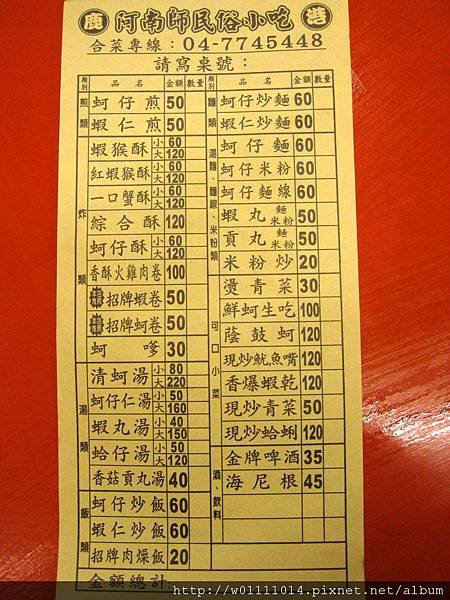 鹿 阿南師民俗小吃 港
合菜專線：04-7745448
請寫桌號：
類別 品名 金額 數量
煎類
蚵仔煎 50
蝦仁煎 50
炸類
蝦猴酥 小60 大120
紅蝦猴酥 小60 大120
一口蟹酥 小60 大120
綜合酥 120
蚵仔酥 小60 大120
香酥火雞肉卷 100
招牌蝦卷 50
招牌蚵卷 50
蚵嗲 30
湯類
清蚵湯 小80 大220
蚵仔仁湯 小50 大160
蝦丸湯 小40 大150
蛤仔湯 小50 大120
香菇貢丸湯 40
飯類
蚵仔炒飯 60
蝦仁炒飯 60
招牌肉燥飯 20
金額總計：
類別 品名 金額 數量
麵類、湯麵、麵線、米粉類
蚵仔炒麵 60
蝦仁炒麵 60
蚵仔麵 60
蚵仔米粉 60
蚵仔麵線 60
蝦丸麵米粉 50
貢丸麵米粉 50
米粉炒 20
可口小菜
燙青菜 30
鮮蚵生吃 100
蔭鼓蚵 120
現炒魷魚嘴 120
香爆蝦乾 120
現炒青菜 50
現炒蛤蜊 120
酒、飲料
金牌啤酒 35
海尼根 45
http://w01111014.pixnet.net/album